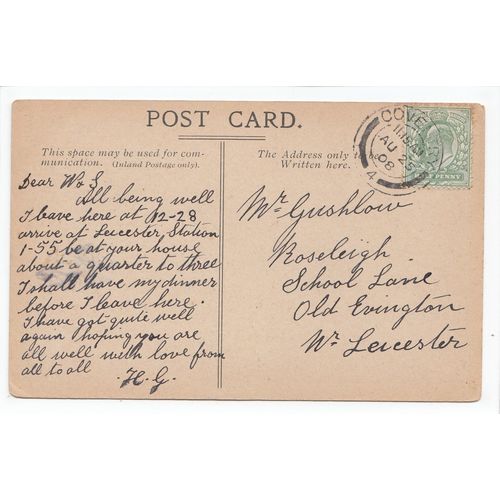 POST CARD.
This space may be used for com-
munication. (Inland Postage only).
The Address only to be
Written here.
COVE
11.15AM
AU 25
06
4
PENNY
Dear W & S
All being well
I leave here at 12-28
arrive at Leicester, Station
1-55 be at your house
about a quarter to three
I shall have my dinner
before I leave here.
I have got quite well
again hoping you are
all well with love from
all to all
H.G.
Mr Gushlow
Roseleigh
School Lane
Old Evington
Nr Leicester